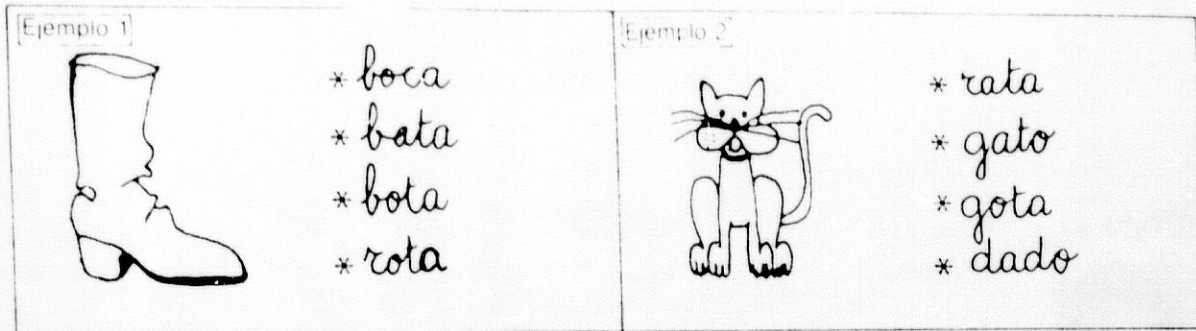 Ejemplo 1
* boca
* bata
* bota
* rota
Ejemplo 2
* rata
* gato
* gota
* dado